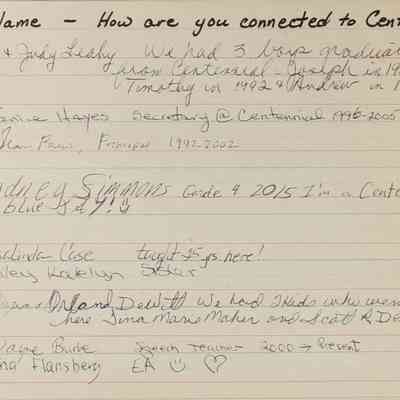 Name — How are you connected to Cent
& Judy Leahy We had 3 boys graduat
from Centennial - Joseph in 19
Timothy in 1992 & Andrew in 1
Hayes Secretary @ Centennial 1996-2005
Principal 1992-2002
Sydney Simmons Grade 4 2015 I'm a Cente
blue Jay!
Case taught 25 yrs. here!
Haley Katelyn Sister
Orland DeWitt We had 2 kids who wen
here Tina Marie Maher and Scott R De
Wayne Burke Speech Teacher 2000 → Present
Flansberg EA